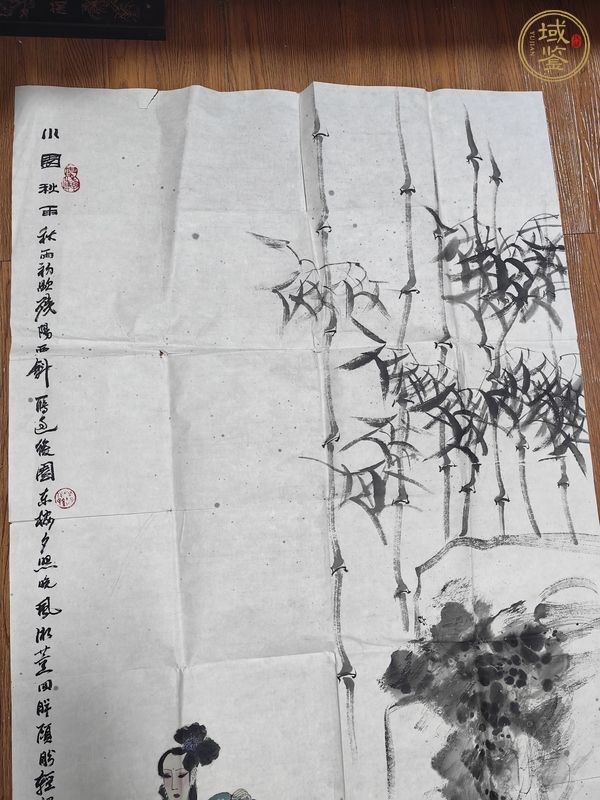 小園秋雨 秋雨初歇殘陽西斜雁过後園东樓夕照晚風渐薰回眸顧盼輕
域鉴
YUJIAN